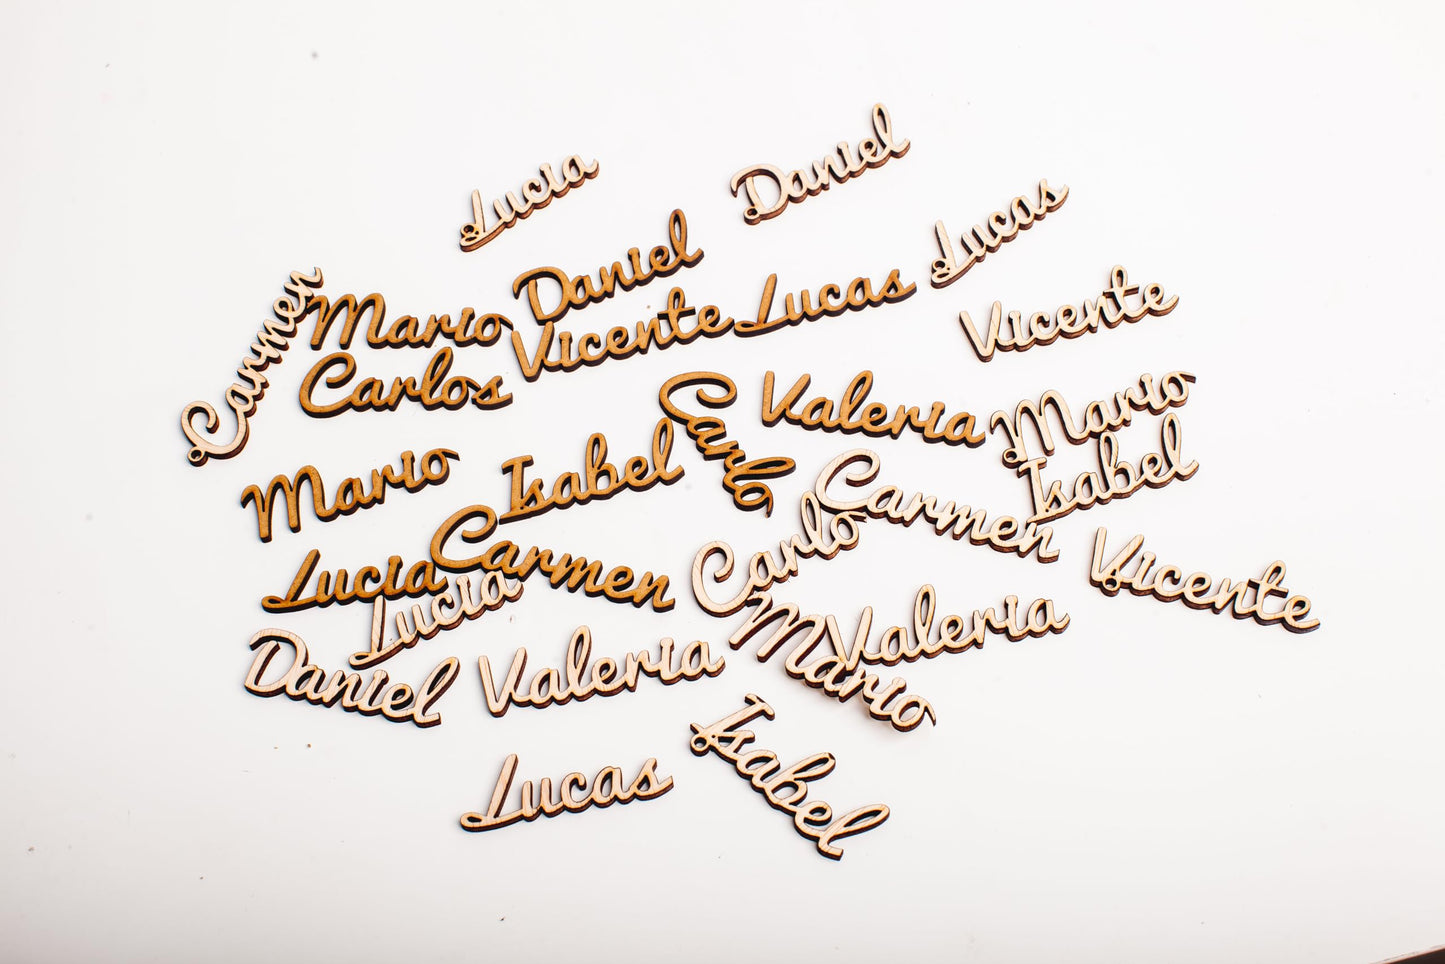 Lucia
Daniel
Lucas
Daniel
Carmen
Mario
Vicente
Lucas
Vicente
Carlos
Valeria
Mario
Carlo
Isabel
Isabel
Mario
Carmen
Carlo
Lucia
Carmen
Vicente
Lucia
Valeria
Daniel
Valeria
Mario
Lucas
Isabel